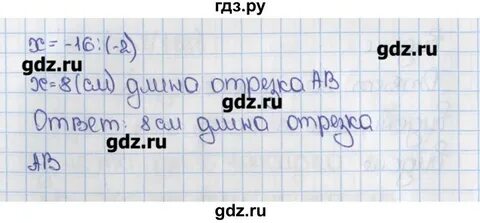 гдз.ру
x = -16:(-2)
x = 8 (см) длина отрезка АВ
Ответ: 8 см длина отрезка
АВ
gdz.ru
gdz.ru
gdz.ru
gdz.ru